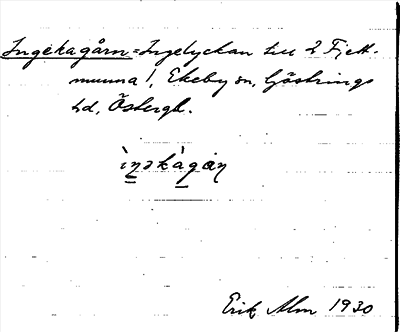 Ingekagårn = Ingelyckan till 2 Fjett-
munna!, Ekeby sn, Göstrings
hd, Östergl.
ìŋəkàgan
Erik Alm 1930